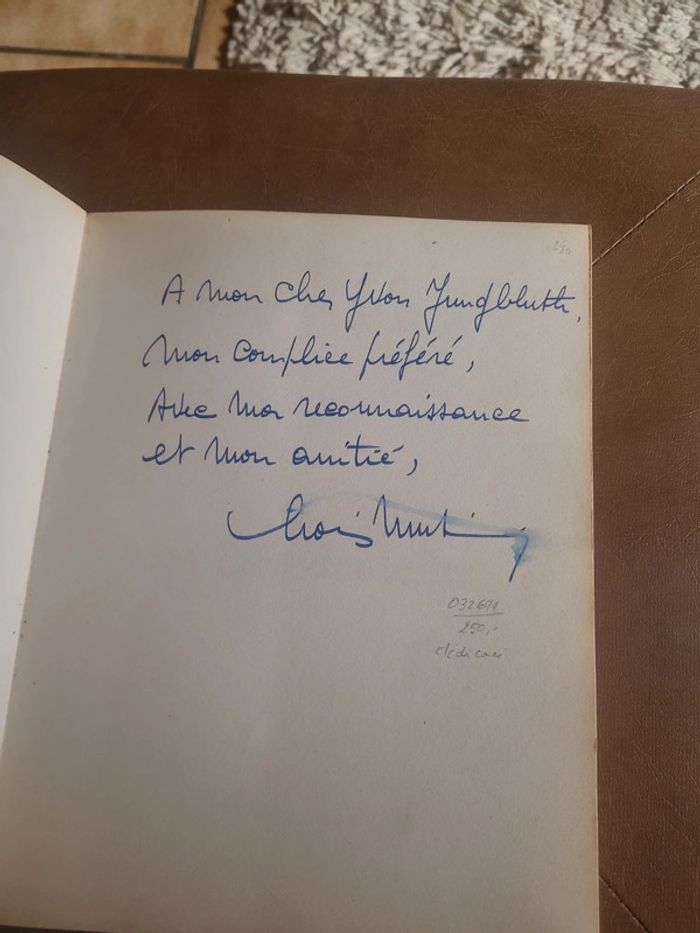 A mon cher Yvon Jungbluth,
mon complice préféré,
Avec ma reconnaissance
et mon amitié,
250,-
dédicacé